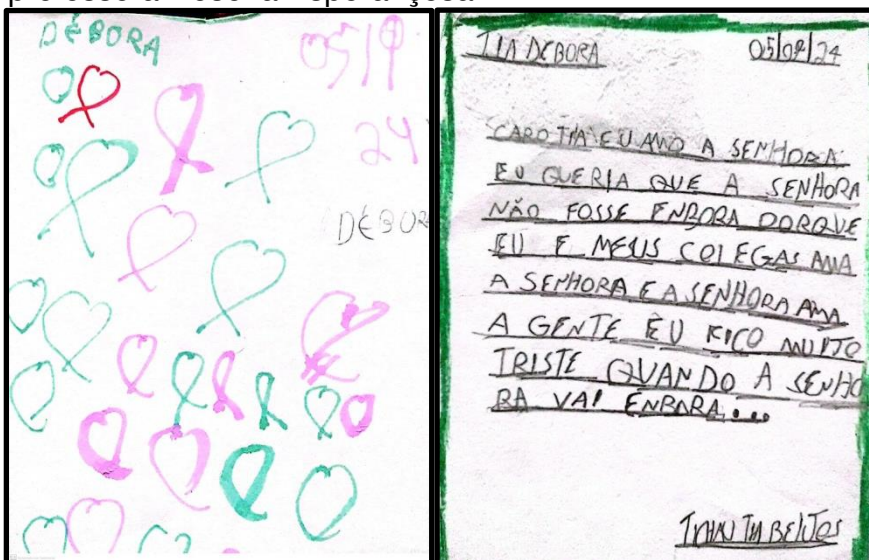 DÉBORA
05/9
24
DÉBOR
TIA DEBORA 05/09/24
CARO TIA EU AMO A SENHORA
EU QUERIA QUE A SENHORA
NÃO FOSSE ENBORA PORQUE
EU E MEUS COLEGAS AMA
A SENHORA E A SENHORA AMA
A GENTE EU FICO MUITO
TRISTE QUANDO A SENHO
RA VAI ENBORA...